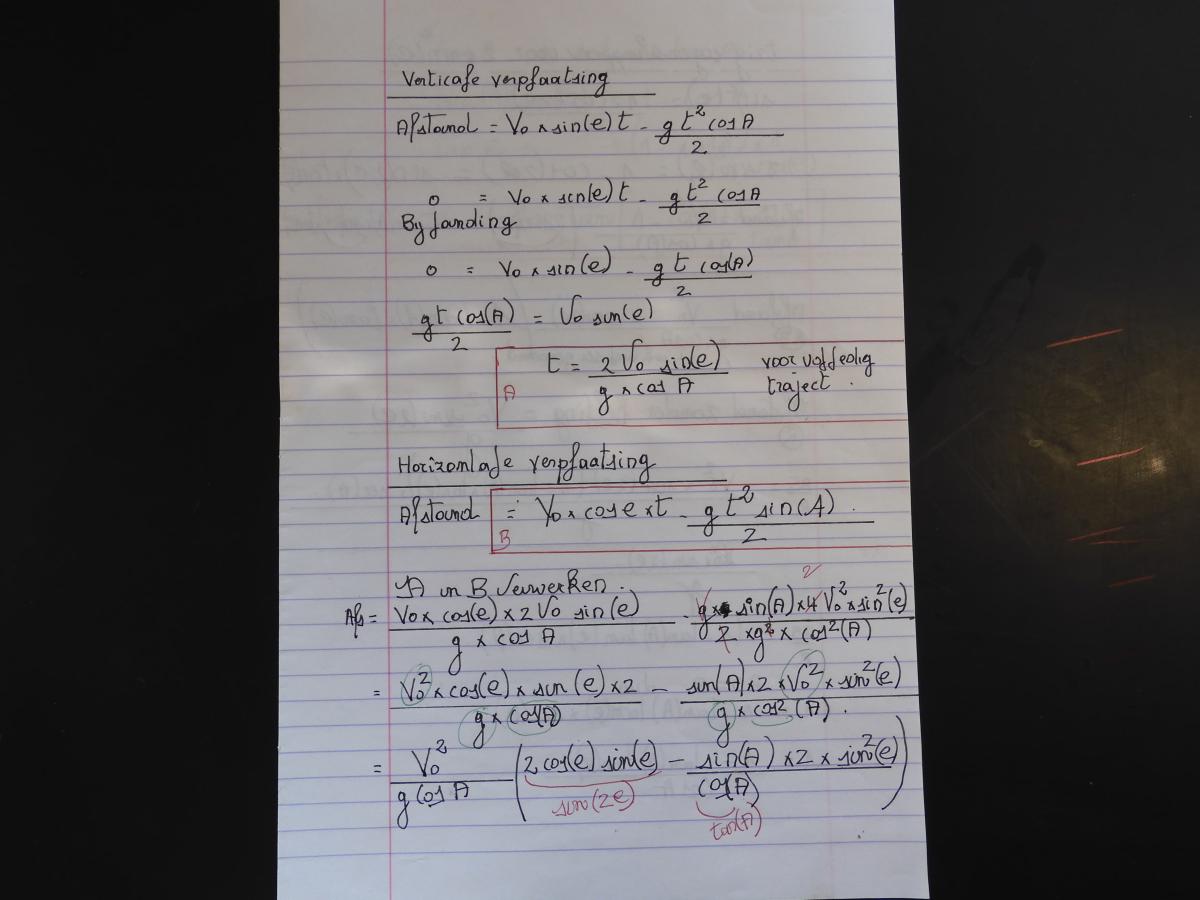 Verticale verplaatsing
Afstand = V₀ × sin(e) t - g t² cos A / 2
0 = V₀ × sin(e) t - g t² cos A / 2
By landing
0 = V₀ × sin(e) - g t cos(A) / 2
g t cos(A) / 2 = V₀ sin(e)
t = 2 V₀ sin(e) / g × cos A voor volledig
A traject.
Horizontale verplaatsing
Afstand = V₀ × cos e × t - g t² sin(A) / 2.
B
A in B verwerken.
Afs = V₀ × cos(e) × 2 V₀ sin(e) / g × cos A - g × sin(A) × 4 V₀² × sin²(e) / 2 × g² × cos²(A)
2
= V₀² × cos(e) × sin(e) × 2 / g × cos(A) - sin(A) × 2 × V₀² × sin²(e) / g × cos²(A).
= V₀² / g cos A (2 cos(e) sin(e) - sin(A) × 2 × sin²(e) / cos(A))
sin(2e)
tan(A)